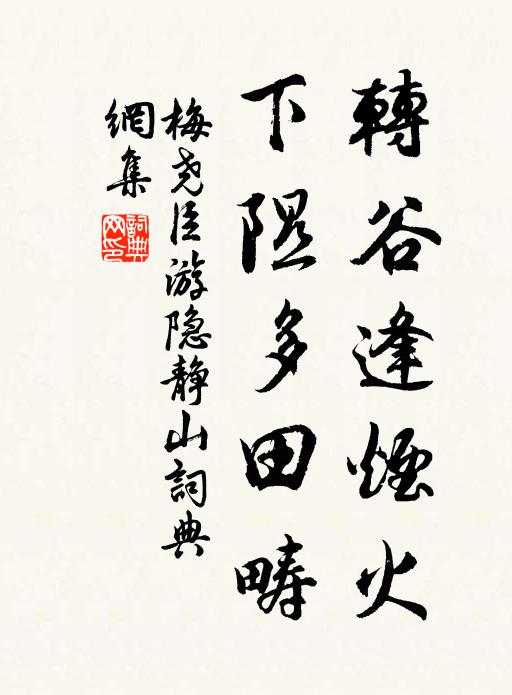 轉谷逢煙火
下隰多田疇
梅尧臣游隐静山詞典
網集
詞典
网印